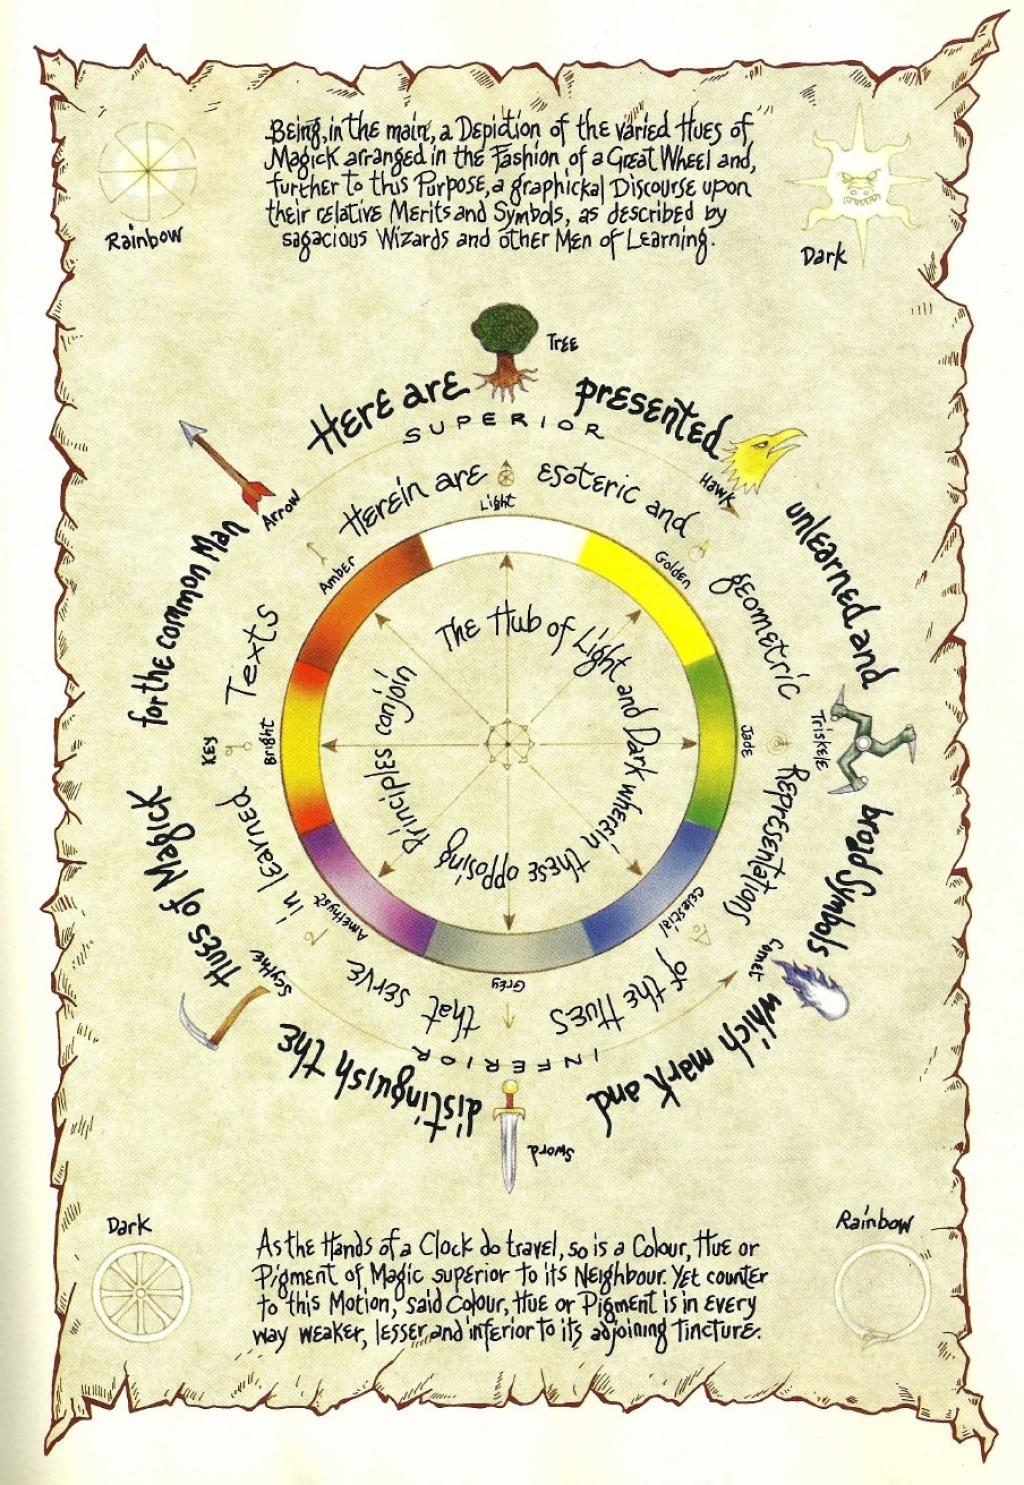 Being, in the main, a Depiction of the varied Hues of
Magick arranged in the Fashion of a Great Wheel and,
further to this Purpose, a graphickal Discourse upon
their relative Merits and Symbols, as described by
sagacious Wizards and other Men of Learning.
Rainbow
Dark
Tree
Hawk
Triskele
Comet
Sword
Scythe
Key
Arrow
Here are presented unlearned and broad Symbols which mark and distinguish the Hues of Magick for the common Man
SUPERIOR
INFERIOR
Herein are esoteric and geometric Representations of the Hues that serve in learned Texts
Light
Golden
Jade
Celestial
Grey
Amethyst
Bright
Amber
The Hub of Light and Dark wherein these opposing Principles conjoin
Dark
Rainbow
As the Hands of a Clock do travel, so is a Colour, Hue or
Pigment of Magic superior to its Neighbour. Yet counter
to this Motion, said Colour, Hue or Pigment is in every
way weaker, lesser and inferior to its adjoining Tincture.